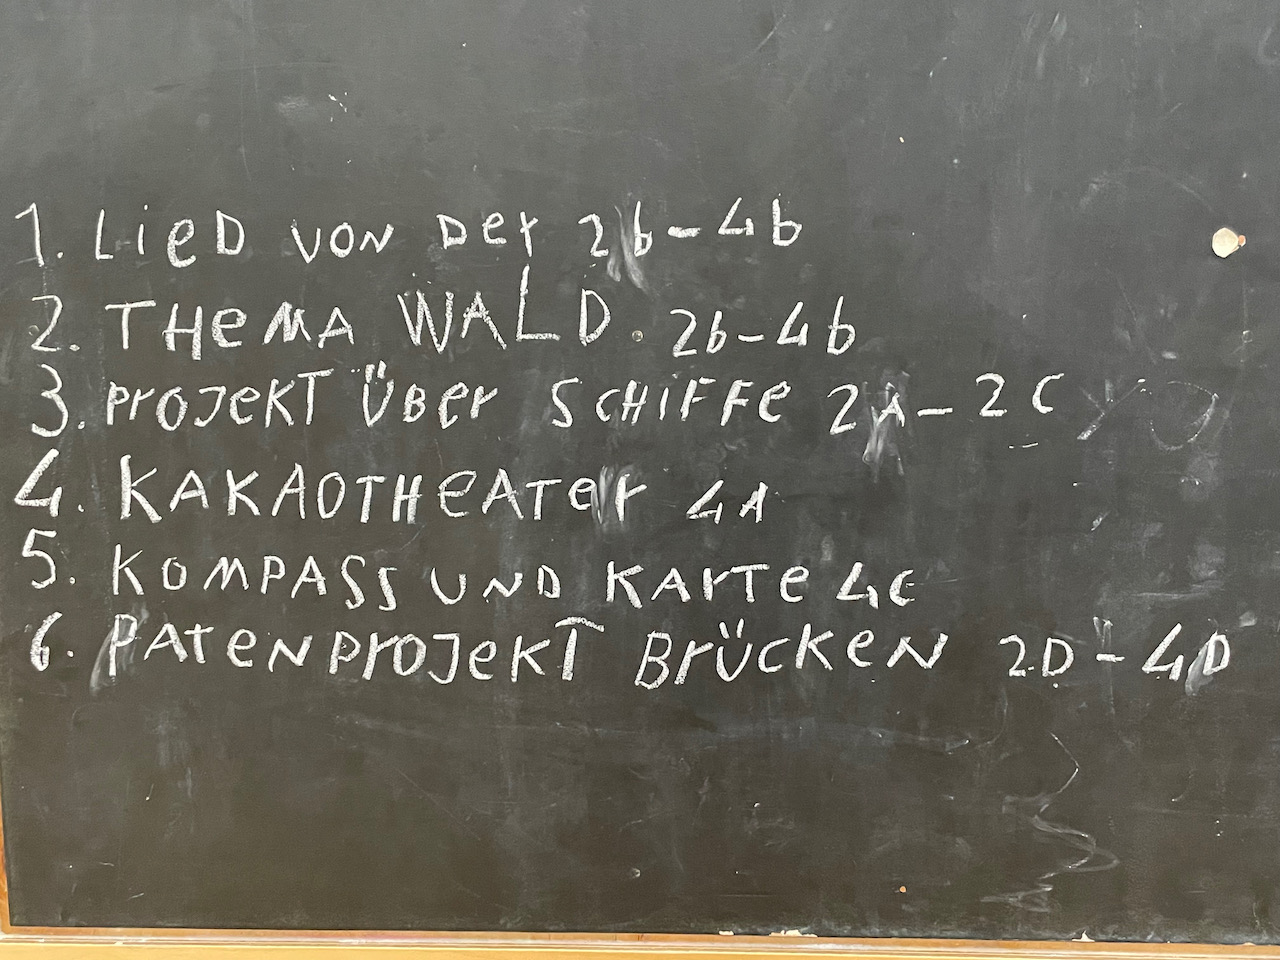 1. LieD VON Der 2b-4b
2. THeMA WALD. 2b-4b
3. ProJeKT ÜBer SCHiFFe 2A-2C
4. KAKAOTHeATer 4A
5. KOMPASS UND KArTe 4C
6. PATeNProJeKT BrÜCKeN 2D-4D